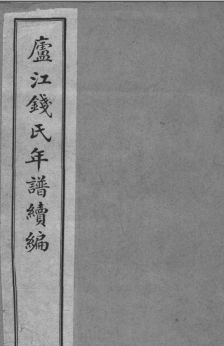 廬江錢氏年譜續編